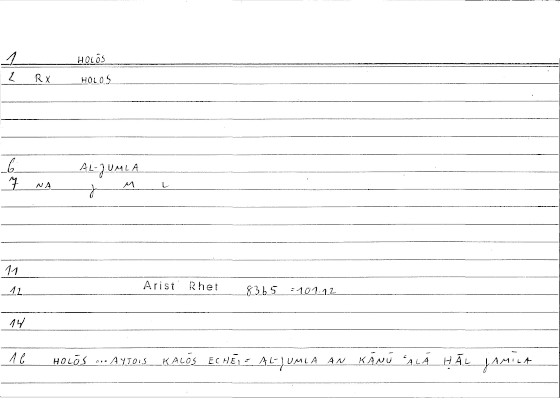 1 HOLŌS
2 RX HOLOS
6 AL-JUMLA
7 NA J M L
11
12 Arist Rhet 8365 =10112
14
16 HOLŌS ... AYTOIS KALŌS ECHĒI = AL-JUMLA AN KĀNŪ ʿALĀ ḤĀL JAMĪLA